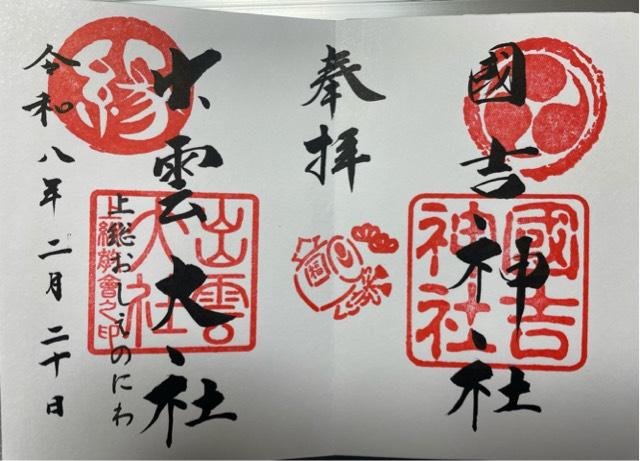 國吉神社
國吉神社
奉拝
出雲大社
縁
出雲大社
上総教會之印
上総おしえのにわ
令和八年二月二十日